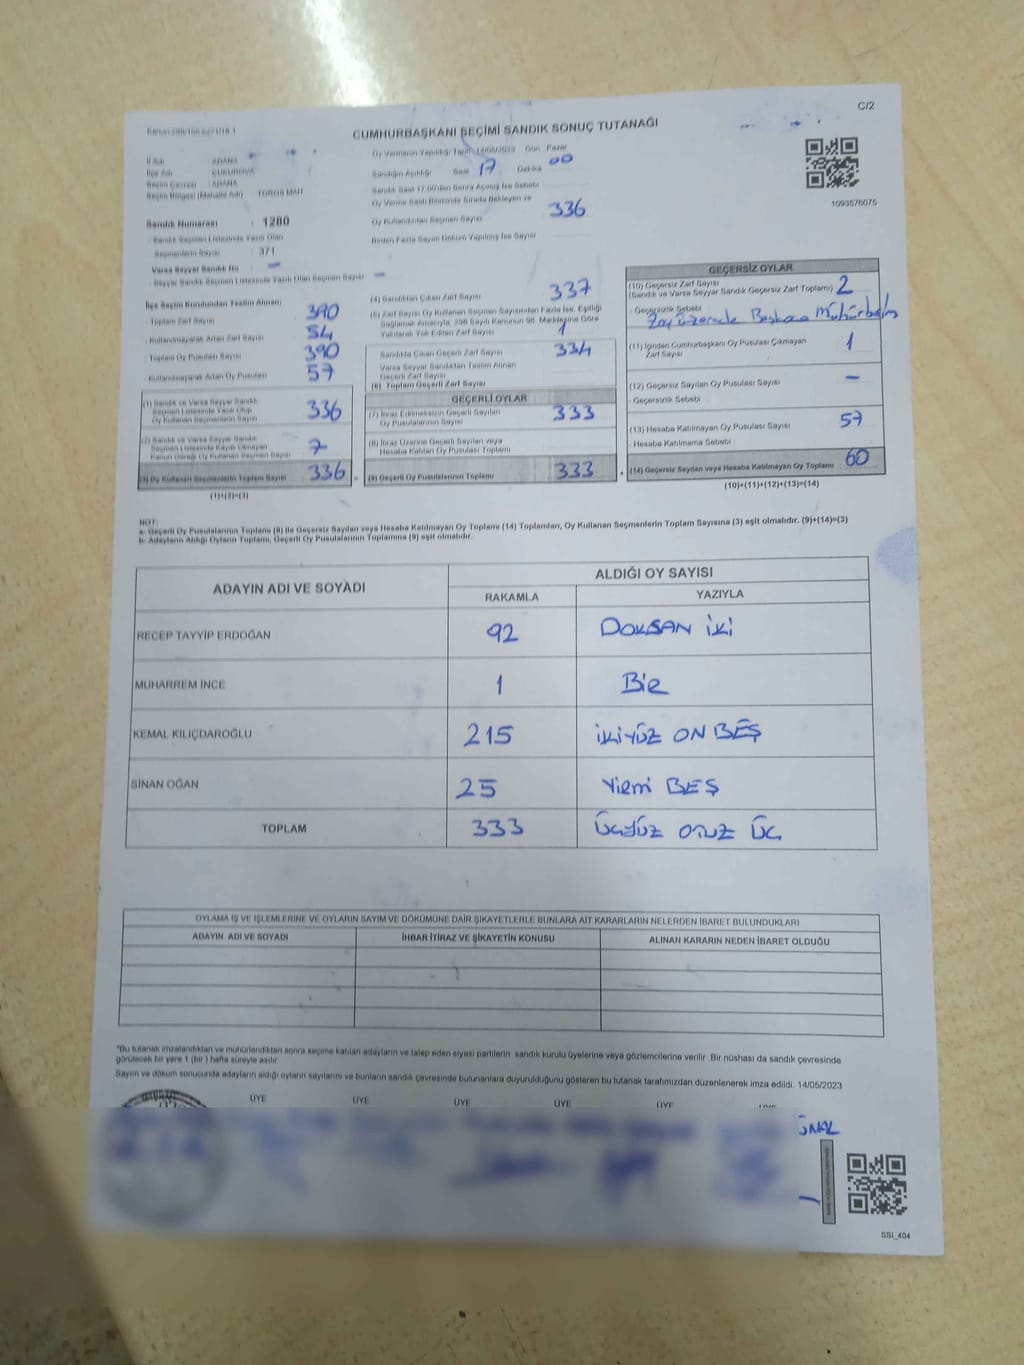 C/2
CUMHURBAŞKANI SEÇİMİ SANDIK SONUÇ TUTANAĞI
İl Adı : ADANA
İlçe Adı : ÇUKUROVA
Seçim Çevresi : ADANA
Seçim Bölgesi (Mahalle Adı) : TOROS MAH
Sandık Numarası : 1280
- Sandık Seçmen Listesinde Yazılı Olan
Seçmenlerin Sayısı : 371
Varsa Seyyar Sandık No : -
- Seyyar Sandık Seçmen Listesinde Yazılı Olan Seçmen Sayısı : -
Oy Vermenin Yapıldığı Tarih : 14/05/2023 Gün Pazar
Sandığın Açıldığı Saat 17 Dakika 00
Sandık Saat 17.00'den Sonra Açılmış İse Sebebi
Oy Verme Saati Bitiminde Sırada Bekleyen ve
Oy Kullandırılan Seçmen Sayısı 336
Birden Fazla Sayım Döküm Yapılmış İse Sayısı
1093576075
İlçe Seçim Kurulundan Teslim Alınan;
- Toplam Zarf Sayısı 390
- Kullanılmayarak Artan Zarf Sayısı 54
- Toplam Oy Pusulası Sayısı 390
- Kullanılmayarak Artan Oy Pusulası 57
(1) Sandık ve Varsa Seyyar Sandık
Seçmen Listesinde Yazılı Olup
Oy Kullanan Seçmenlerin Sayısı 336
(2) Sandık ve Varsa Seyyar Sandık
Seçmen Listesinde Kaydı Olmayan
Kanun Gereği Oy Kullanan Seçmen Sayısı
(3) Oy Kullanan Seçmenlerin Toplam Sayısı 336
(1)+(2)=(3)
(4) Sandıktan Çıkan Zarf Sayısı 337
(5) Zarf Sayısı Oy Kullanan Seçmen Sayısından Fazla İse, Eşitliği
Sağlamak Amacıyla, 298 Sayılı Kanunun 98. Maddesine Göre
Yakılarak Yok Edilen Zarf Sayısı 1
Sandıkta Çıkan Geçerli Zarf Sayısı 334
Varsa Seyyar Sandıktan Teslim Alınan
Geçerli Zarf Sayısı
(6) Toplam Geçerli Zarf Sayısı
GEÇERLİ OYLAR
(7) İtiraz Edilmeksizin Geçerli Sayılan
Oy Pusulalarının Sayısı 333
(8) İtiraz Üzerine Geçerli Sayılan veya
Hesaba Katılan Oy Pusulası Toplamı
(9) Geçerli Oy Pusulalarının Toplamı 333
GEÇERSİZ OYLAR
(10) Geçersiz Zarf Sayısı 2
(Sandık ve Varsa Seyyar Sandık Geçersiz Zarf Toplamı)
- Geçersizlik Sebebi
(11) İçinden Cumhurbaşkanı Oy Pusulası Çıkmayan
Zarf Sayısı 1
(12) Geçersiz Sayılan Oy Pusulası Sayısı -
- Geçersizlik Sebebi
(13) Hesaba Katılmayan Oy Pusulası Sayısı 57
- Hesaba Katılmama Sebebi
(14) Geçersiz Sayılan veya Hesaba Katılmayan Oy Toplamı 60
(10)+(11)+(12)+(13)=(14)
NOT:
a- Geçerli Oy Pusulalarının Toplamı (9) ile Geçersiz Sayılan veya Hesaba Katılmayan Oy Toplamı (14) Toplamları, Oy Kullanan Seçmenlerin Toplam Sayısına (3) eşit olmalıdır. (9)+(14)=(3)
b- Adayların Aldığı Oyların Toplamı, Geçerli Oy Pusulalarının Toplamına (9) eşit olmalıdır.
ADAYIN ADI VE SOYADI ALDIĞI OY SAYISI
RAKAMLA YAZIYLA
RECEP TAYYİP ERDOĞAN 92 DOKSAN İKİ
MUHARREM İNCE 1 Bir
KEMAL KILIÇDAROĞLU 215 İKİYÜZ ON BEŞ
SİNAN OĞAN 25 Yirmi BEŞ
TOPLAM 333 ÜÇYÜZ OTUZ ÜÇ
OYLAMA İŞ VE İŞLEMLERİNE VE OYLARIN SAYIM VE DÖKÜMÜNE DAİR ŞİKAYETLERLE BUNLARA AİT KARARLARIN NELERDEN İBARET BULUNDUKLARI
ADAYIN ADI VE SOYADI İHBAR İTİRAZ VE ŞİKAYETİN KONUSU ALINAN KARARIN NEDEN İBARET OLDUĞU
*Bu tutanak imzalandıktan ve mühürlendikten sonra seçime katılan adayların ve talep eden siyasi partilerin sandık kurulu üyelerine veya gözlemcilerine verilir. Bir nüshası da sandık çevresinde
görülecek bir yere 1 (bir) hafta süreyle asılır.
Sayım ve döküm sonucunda adayların aldığı oyların sayılarını ve bunların sandık çevresinde bulunanlara duyurulduğunu gösteren bu tutanak tarafımızdan düzenlenerek imza edildi. 14/05/2023
ÜYE ÜYE ÜYE ÜYE ÜYE
ÜNAL
SSI_404